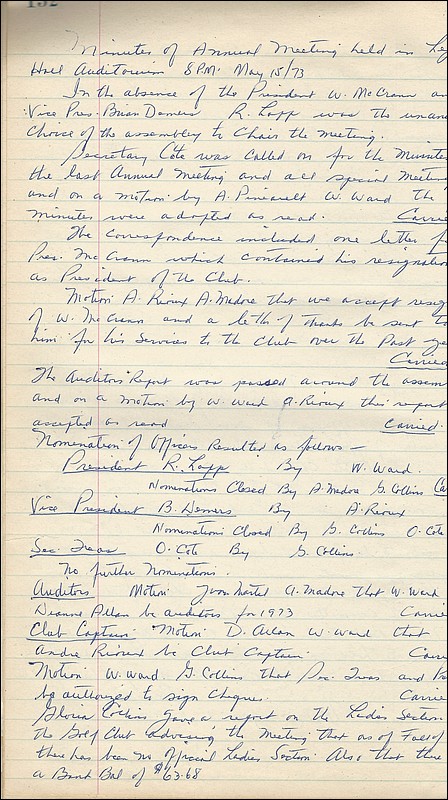 132
Minutes of Annual Meeting held in Leg
Hall Auditorium 8 P.M. May 15/73
In the absence of the President W. McCrann an
Vice Pres. Brian Demers R. Lapp was the unan
Choice of the assembly to Chair the meeting.
Secretary Cote was called on for the Minutes
the last Annual Meeting and all special Meetin
and on a motion by A. Pineault W. Ward the
minutes were adopted as read. Carrie
The correspondence included one letter f
Pres. McCrann which contained his resignation
as President of the Club.
Motion A. Rioux A. Madore that we accept resig
of W. McCrann and a letter of thanks be sent t
him for his services to the Club over the Past ye
Carried
The Auditors Report was passed around the assem
and on a motion by W. Ward A. Rioux this report
accepted as read Carried.
Nomination of Officers Resulted as follows —
President R. Lapp By W. Ward.
Nominations Closed By A. Madore G. Collins Ca
Vice President B. Demers By A. Rioux
Nominations Closed By G. Collins O. Cote
Sec. Treas O. Cote By G. Collins.
No further Nominations.
Auditors Motion Yvon Martel A. Madore that W. Ward
Dianne Allan be auditors for 1973 Carrie
Club Captain. Motion D. Allan W. Ward that
Andre Rioux be Club Captain. Carrie
Motion W. Ward G. Collins that Sec. Treas and Pr
be authorized to sign Cheques. Carrie
Gloria Collins gave a report on the Ladies Section
the Golf Club advising the meeting that as of Fall of
there has been no Official Ladies Section. Also that there
a Bank Bal of $63.68